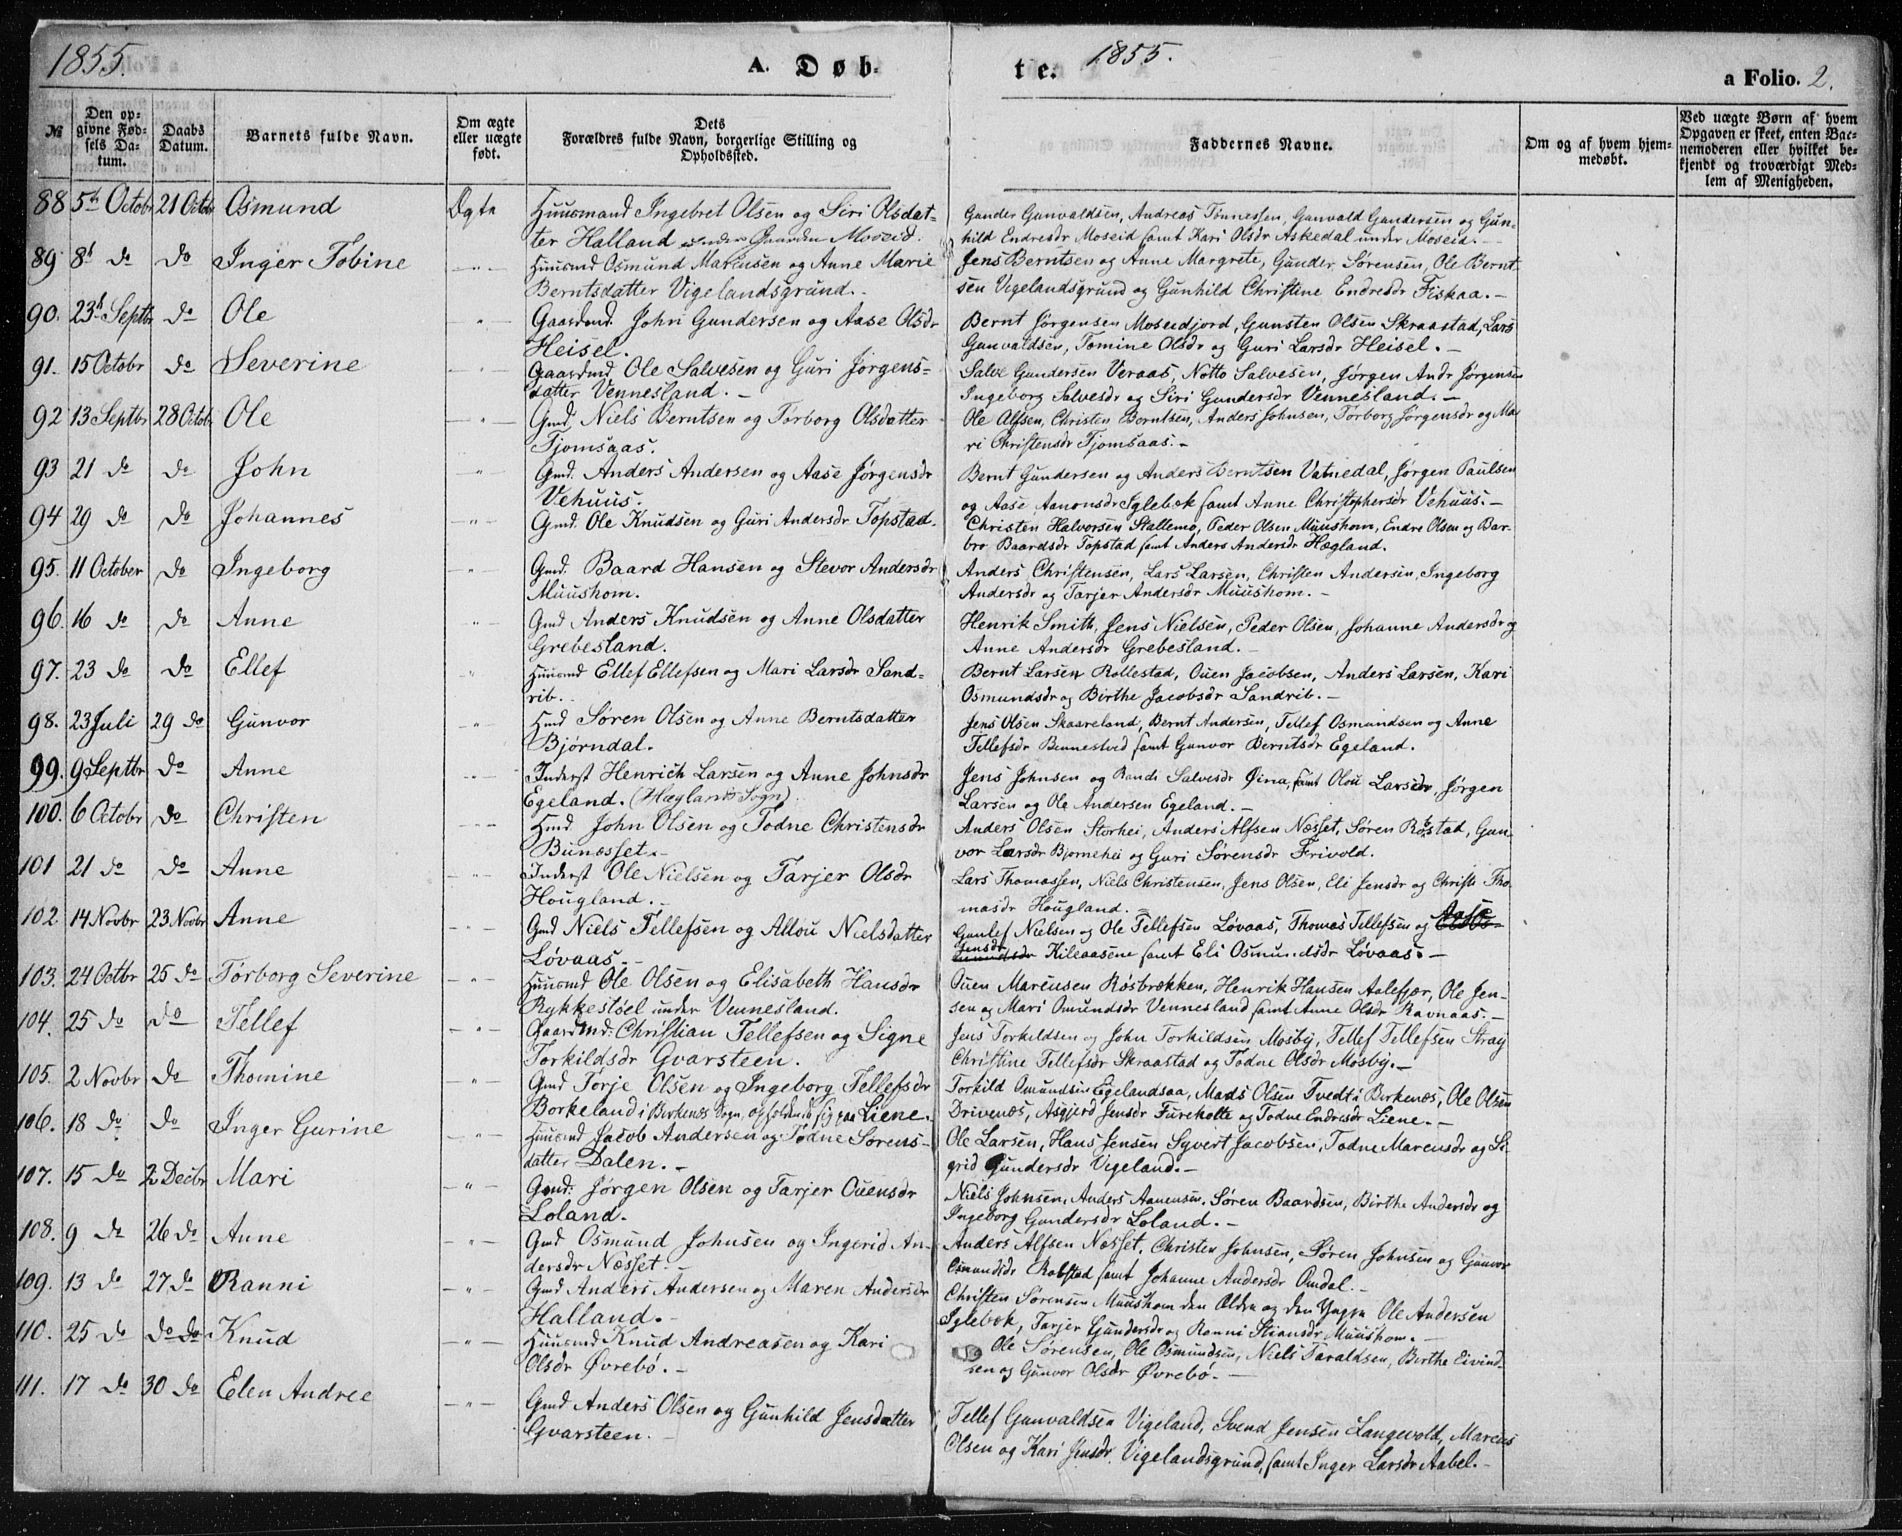 1855.
A. Døb-
te. 1855.
a Folio. 2.
№
Den op-
givne Fød-
sels Da-
tum.
Daabs
Datum.
Barnets fulde Navn.
Om ægte
eller uægte
født.
Dets
Forældres fulde Navn, borgerlige Stilling og
Opholdssted.
Faddernes Navne.
Om og af hvem hjem-
medøbt.
Ved uægte Børn af hvem
Opgaven er skeet, enten Bar-
nemoderen eller hvilket be-
kjendt og troværdigt Med-
lem af Menigheden.
88 5te Octobr 21 Octobr Osmund Ægte Huusmand Ingebret Olsen og Siri Olsdat- Gunder Gunvaldsen, Andreas Tønnessen, Gunvald Gundersen og Gun-
ter Halland under Gaarden Moseid. hild Endresdr Moseid samt Kari Olsdr Askedal under Moseid.-
89 8d do do Inger Tobine -"- Huusmd Osmund Marensen og Anne Marie Jens Berntsen og Anne Margrete, Gunder Sørensen, Ole Bernt-
Berntsdatter Vigelandsgrund.- sen Vigelandsgrund og Gunhild Christine Endresdr Fiskaa.-
90. 23d Septbr do Ole " Gaardmd. John Gundersen og Aase Olsdr Bernt Jørgensen Moseidjord, Gunsten Olsen Skraastad, Lars
Heisel. Gunvaldsen, Tomine Olsdr og Guri Larsdr Heisel.-
91. 15 Octobr do Severine " Gaardmd Ole Salvesen og Guri Jørgens- Salve Gundersen Veraas, Notto Salvesen, Jørgen Andr Jørgensen
datter Vennesland.- Ingeborg Salvesdr og Siri Gundersdr Vennesland.-
92 13 Septbr 28 Octobr Ole -"- Gmd Niels Berntsen og Torborg Olsdatter Ole Alfsen, Christen Berntsen, Anders Johnsen, Torborg Jørgensdr og Ma-
Tjomsaas. ri Christensdr Tjomsaas.-
93 21 do do John " Gmd. Anders Andersen og Aase Jørgensdr Bernt Gundersen og Anders Berntsen Vatnedal, Jørgen Paulsen
Vehuus. og Aase Aanonsdr Iglebæk samt Anne Christophersdr Vehuus.-
94 29 do do Johannes -"- Gmd. Ole Knudsen og Guri Andersdr Topstad. Christen Halvorsen Stallemo, Peder Olsen Muushom, Endre Olsen og Bar-
bro Baardsdr Topstad samt Anders Andersdr Hægland.
95. 11 October do Ingeborg " Gmd. Baard Hansen og Stevor Andersdr Anders Christensen, Lars Larsen, Christen Andersen, Ingeborg
Muushom. Andersdr og Tarjer Andersdr Muushom.-
96. 16 do do Anne " Gmd Anders Knudsen og Anne Olsdatter Henrik Smith, Jens Nielsen, Peder Olsen, Johanne Andersdr og
Grebesland. Anne Andersdr Grebesland.-
97. 23 do do Ellef -"- Huusmd Ellef Ellefsen og Mari Larsdr Sand- Bernt Larsen Rollestad, Ouen Jacobsen, Anders Larsen, Kari
rib. Osmundsdr og Birthe Jacobsdr Sandrib.-
98. 23 Juli 29 do Gunvor -"- Hmd Søren Olsen og Anne Berntsdatter Jens Olsen Skaareland, Bernt Andersen, Tellef Osmundsen og Anne
Bjørndal. Tellefsdr Bennestved samt Gunvor Berntsdr Egeland.
99. 9 Septbr do Anne -"- Inderst Henrich Larsen og Anne Johnsdr Jens Johnsen og Randi Salvesdr Øina, samt Olou Larsdr, Jørgen
Egeland. (Hæglands Sogn) Larsen og Ole Andersen Egeland.-
100. 6 Octobr do Christen -"- Hmd John Olsen og Todne Christensdr Anders Olsen Storhei, Anders Alfsen Næsset, Søren Robstad, Gun-
Bunæsset.- vor Larsdr Bjornehei og Guri Sørensdr Frivold.
101 21 do do Anne -"- Inderst Ole Nielsen og Tarjer Olsdr Lars Thomassen, Niels Christensen, Jens Olsen, Eli Jensdr og Christi Tho-
Hougland.- masdr Hougland.-
102. 14 Novbr 23 Novbr Anne -"- Gmd Niels Tellefsen og Allou Nielsdatter Gunlef Nielsen og Ole Tellefsen Løvaas, Thomas Tellefsen og Aase
Løvaas.- Jensdr Kileaasene samt Eli Osmundsdr Løvaas.-
103. 24 Octbr 25 do Torborg Severine -"- Huusmd Ole Olsen og Elisabeth Hansdr Ouen Marensen Røsbrækken, Henrik Hansen Aalefjær, Ole Jen-
Rykkestøel under Vennesland. sen og Mari Omundsdr Vennesland samt Anne Olsdr Ravnaas.-
104. 25 do do Tellef -"- Gaardmd: Christian Tellefsen og Signe Jens Torkildsen og John Torkildsen Mosby, Tellef Tellefsen Stray
Torkildsdr Qvarsteen. Christine Tellefsdr Skraastad og Todne Olsdr Mosby.-
105. 2 Novbr do Thomine " Gmd Torje Olsen og Ingeborg Tellefsdr Torkild Omundsen Egelandsaa, Mads Olsen Tvedt i Birkenæs, Ole Olsen
Borkeland i Birkenæs Sogn, opholdende sig paa Liene. Drivenæs, Asgjerd Jensdr Fureholte og Todne Endresdr Liene.-
106. 18 do do Inger Gurine -"- Huusmd Jacob Andersen og Todne Sørens- Ole Larsen, Hans Jensen Syvert Jacobsen, Todne Marensdr og Si-
datter Dalen.- grid Gundersdr Vigeland.-
107. 15 do 2 Decbr Mari -"- Gmd: Jørgen Olsen og Tarjer Ouensdr Niels Johnsen, Anders Aanensen, Søren Baardsen, Birthe Andersdr og
Loland. Ingeborg Gundersdr Loland.-
108. 9 do 26 do Anne -"- Gmd Osmund Johnsen og Ingerid An- Anders Alfsen Næsset, Christen Johnsen, Søren Johnsen og Gunvor
dersdr Næsset.- Osmundsdr Robstad samt Johanne Andersdr Omdal.-
109. 13 do 27 do Ranni -"- Gmd Anders Andersen og Maren Andersdr Christen Sørensen Muushom den Ældre og den Yngre Ole Andersen
Halland.- Iglebæk, Tarjer Gundersdr og Ranni Stiansdr Muushom.-
110. 25 do do do Knud -"- Huusmd Knud Andreasen og Kari Ole Sørensen, Ole Osmundsen, Niels Taraldsen, Birthe Eivind-
Olsdr Øvrebø.- sen og Gunvor Olsdr Øvrebø.-
111. 17 do 30 do Elen Andree -"- Gmd Anders Olsen og Gunhild Jensdatter Tellef Gunvaldsen Vigeland, Svend Jensen Langevold, Marcus
Qvarsteen.- Olsen og Kari Jensdr. Vigelandsgrund, samt Inger Larsdr Aabel.-